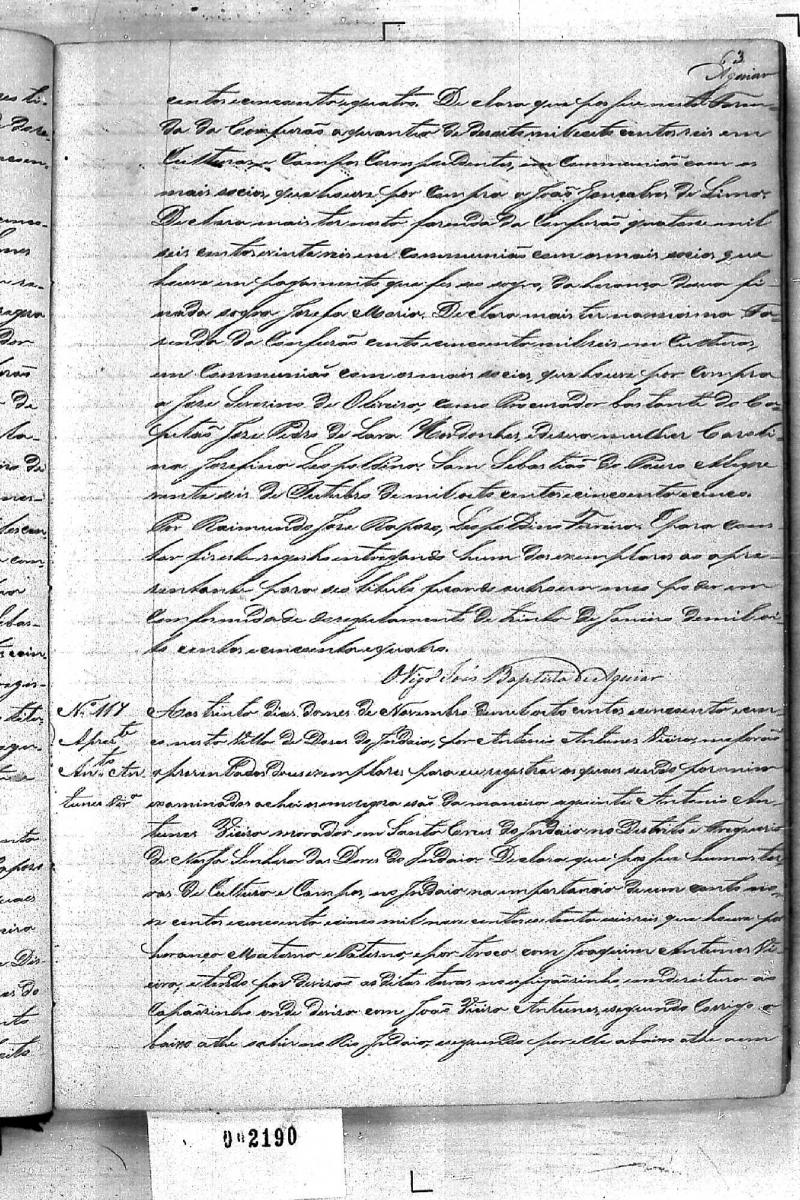 63
Aguiar
centos e cincoenta e quatro. Declara que possue nesta Fasen-
da da Confusão a quantia de desoito mil e oito centos reis em
Culturas e Campos Correspondentes, em Communião com os
mais socios, que houve por compra a João Gonçalves de Lima.
Declara mais ter nesta fasenda da Confusão quatorse mil
seis centos e vinte reis em Communião com os mais socios que
houve em pagamento que fes seo sogro, da herança de sua fi-
nada sogra Josefa Maria. Declara mais ter na mesma Fa-
senda da Confusão cento e cincoenta mil reis em Culturas,
em Communião com os mais socios, que houve por Compra
a Jose Severino de Oliveira, como Procurador bastante do Ca-
pitão Jose Pedro de Lara Mordonhes, e de sua mulher Caroli-
na Josefina Leopoldina. Sam Sebastião do Pouso Alegre
vinte seis de Outubro de mil oito centos e cincoenta e cinco.
Por Raimundo Jose Raposo, Leopoldino Ferreira. E para cons-
tar fis este registro entregando hum dos exemplares ao apre-
sentante para seo titulo ficando outro em meo poder em
Comformidade do regulamento de trinta de Janeiro de mil oi-
to centos e cincoenta e quatro.
O Vigº Luis Baptista de Aguiar
Nº 117
Apreste
Antº An
tunes Virª
Aos trinta dias do mes de Novembro de mil oito centos e cincoenta e cin-
co nesta Villa de Dores do Indaia, por Antonio Antunes Vieira, me forão
apresentados dous exemplares para eu registrar os quaes sendo por mim
examinados achei em regra e são da maneira seguinte. Antonio An-
tunes Vieira morador em Santa Crus do Indaia no Districto e Freguesia
de Nossa Senhora das Dores do Indaia. Declara que possue humas ter-
ras de Cultura e Campos, no Indaia na importancia de um conto no-
ve centos e cincoenta e cinco mil nove centos e tenta e seis reis que houve por
herança Materna e Paterna, e por troca com Joaquim Antunes Vi-
eira, e tendo por devisa as ditas terras no espigãosinho, em direitura ao
Capãosinho onde devisa com João Vieira Antunes, e seguindo Corrigo a
baixo athe sahir no Rio Indaia, e seguindo por elle abaixo athe a em
002190